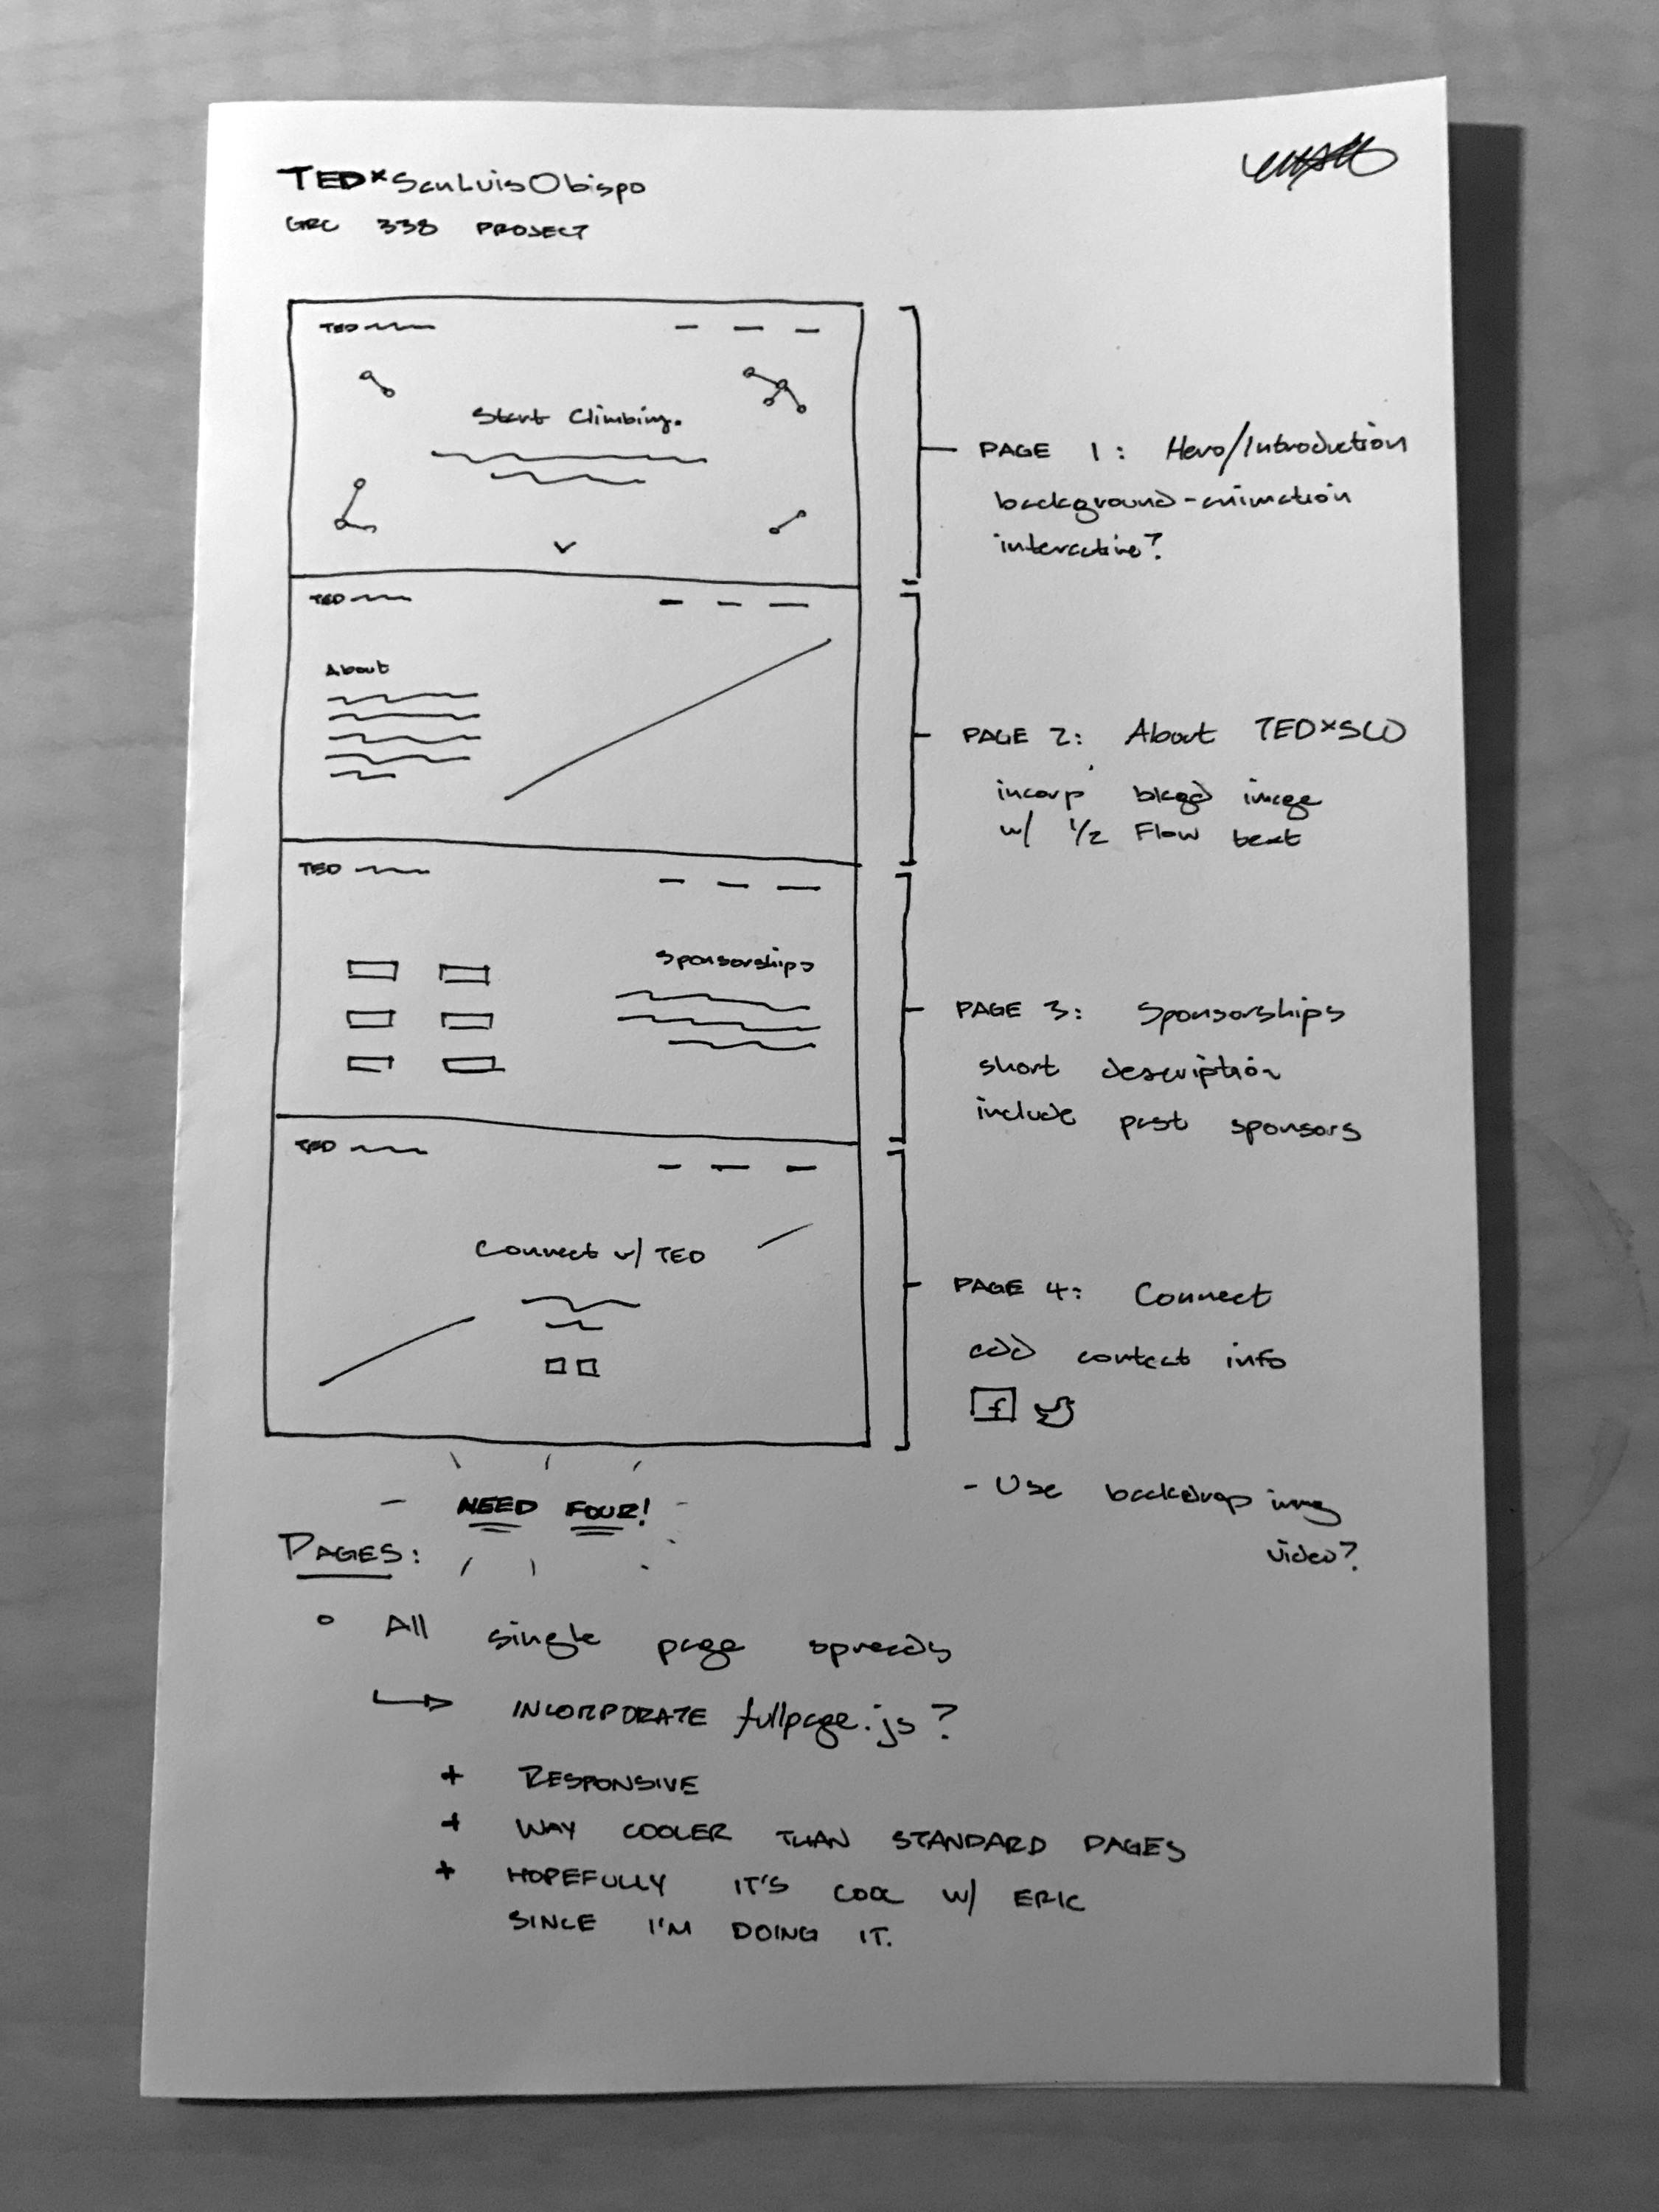 TEDxSanLuisObispo
GRC 338 PROJECT
TED
Start Climbing.
PAGE 1: Hero/Introduction
background-animation
interactive?
TED
About
PAGE 2: About TEDxSLO
incorp bkgd image
w/ 1/2 Flow text
TED
Sponsorships
PAGE 3: Sponsorships
short description
include past sponsors
TED
Connect w/ TED
PAGE 4: Connect
add contact info
f
- Use backdrop img
video?
NEED FOUR!
PAGES:
All single page spreads
INCORPORATE fullpage.js?
+ RESPONSIVE
+ WAY COOLER THAN STANDARD PAGES
+ HOPEFULLY IT'S COOL W/ ERIC
SINCE I'M DOING IT.